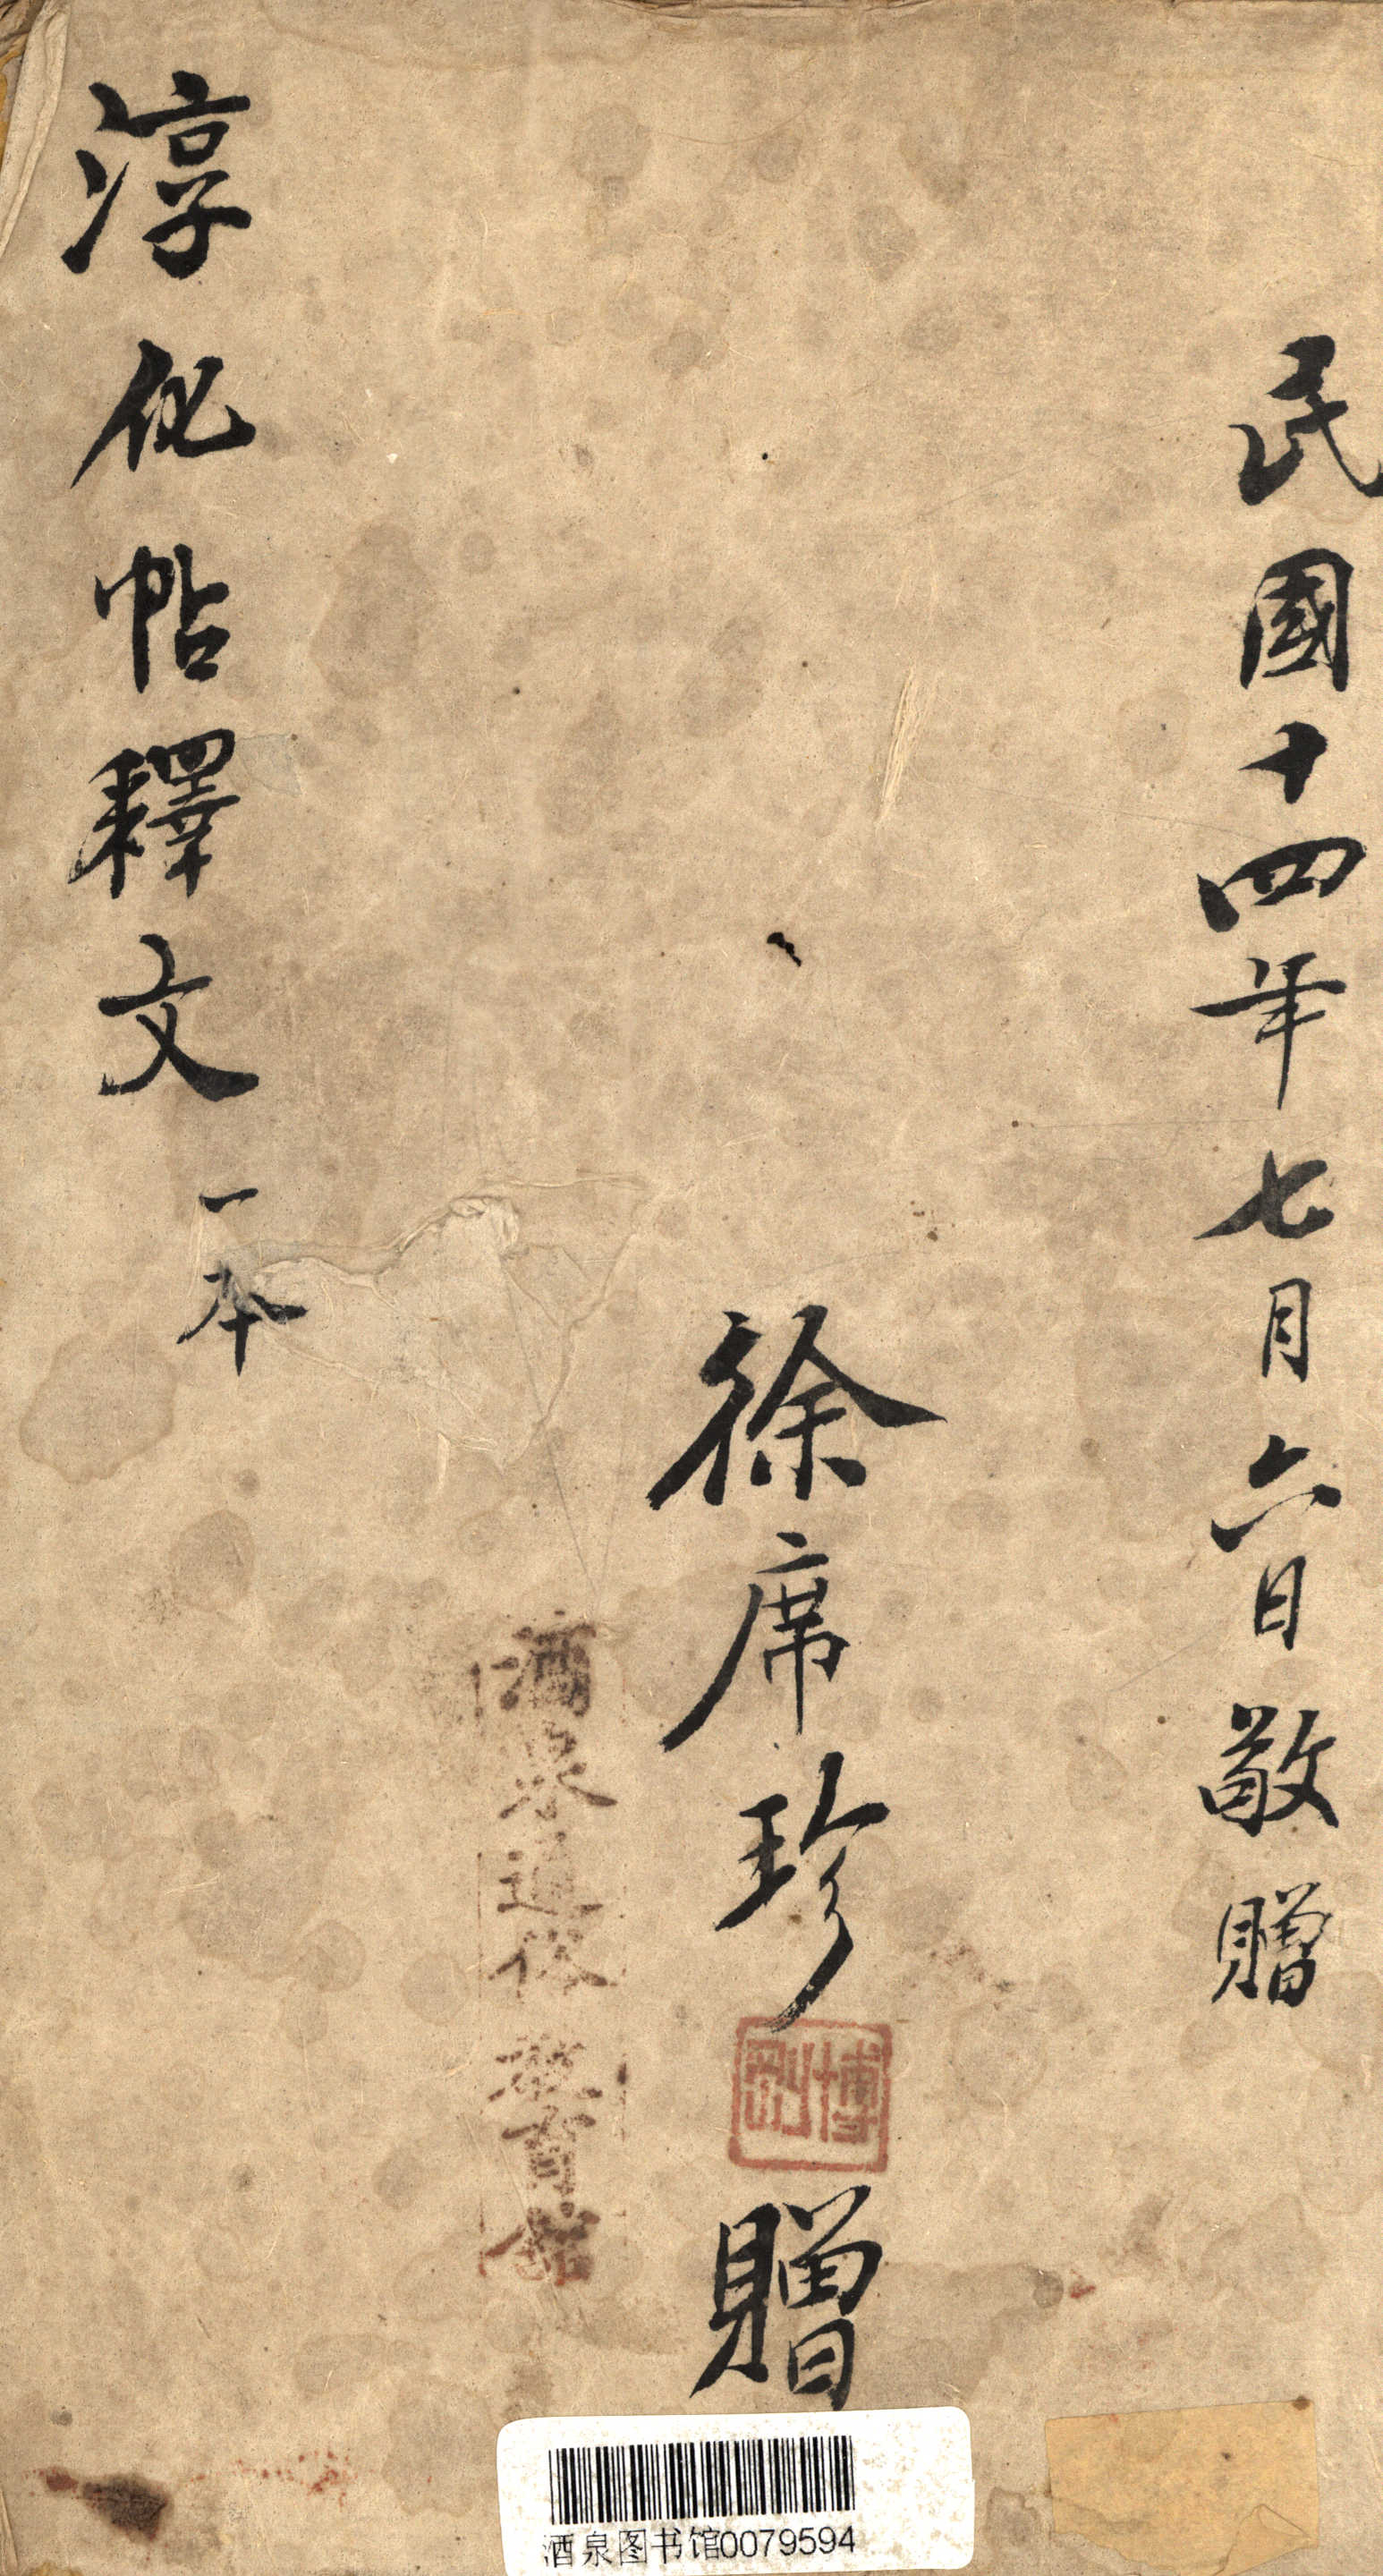 民國十四年七月六日敬贈
徐席珍贈
博
酒泉通俗教育館
淳化帖釋文一本
酒泉图书馆0079594